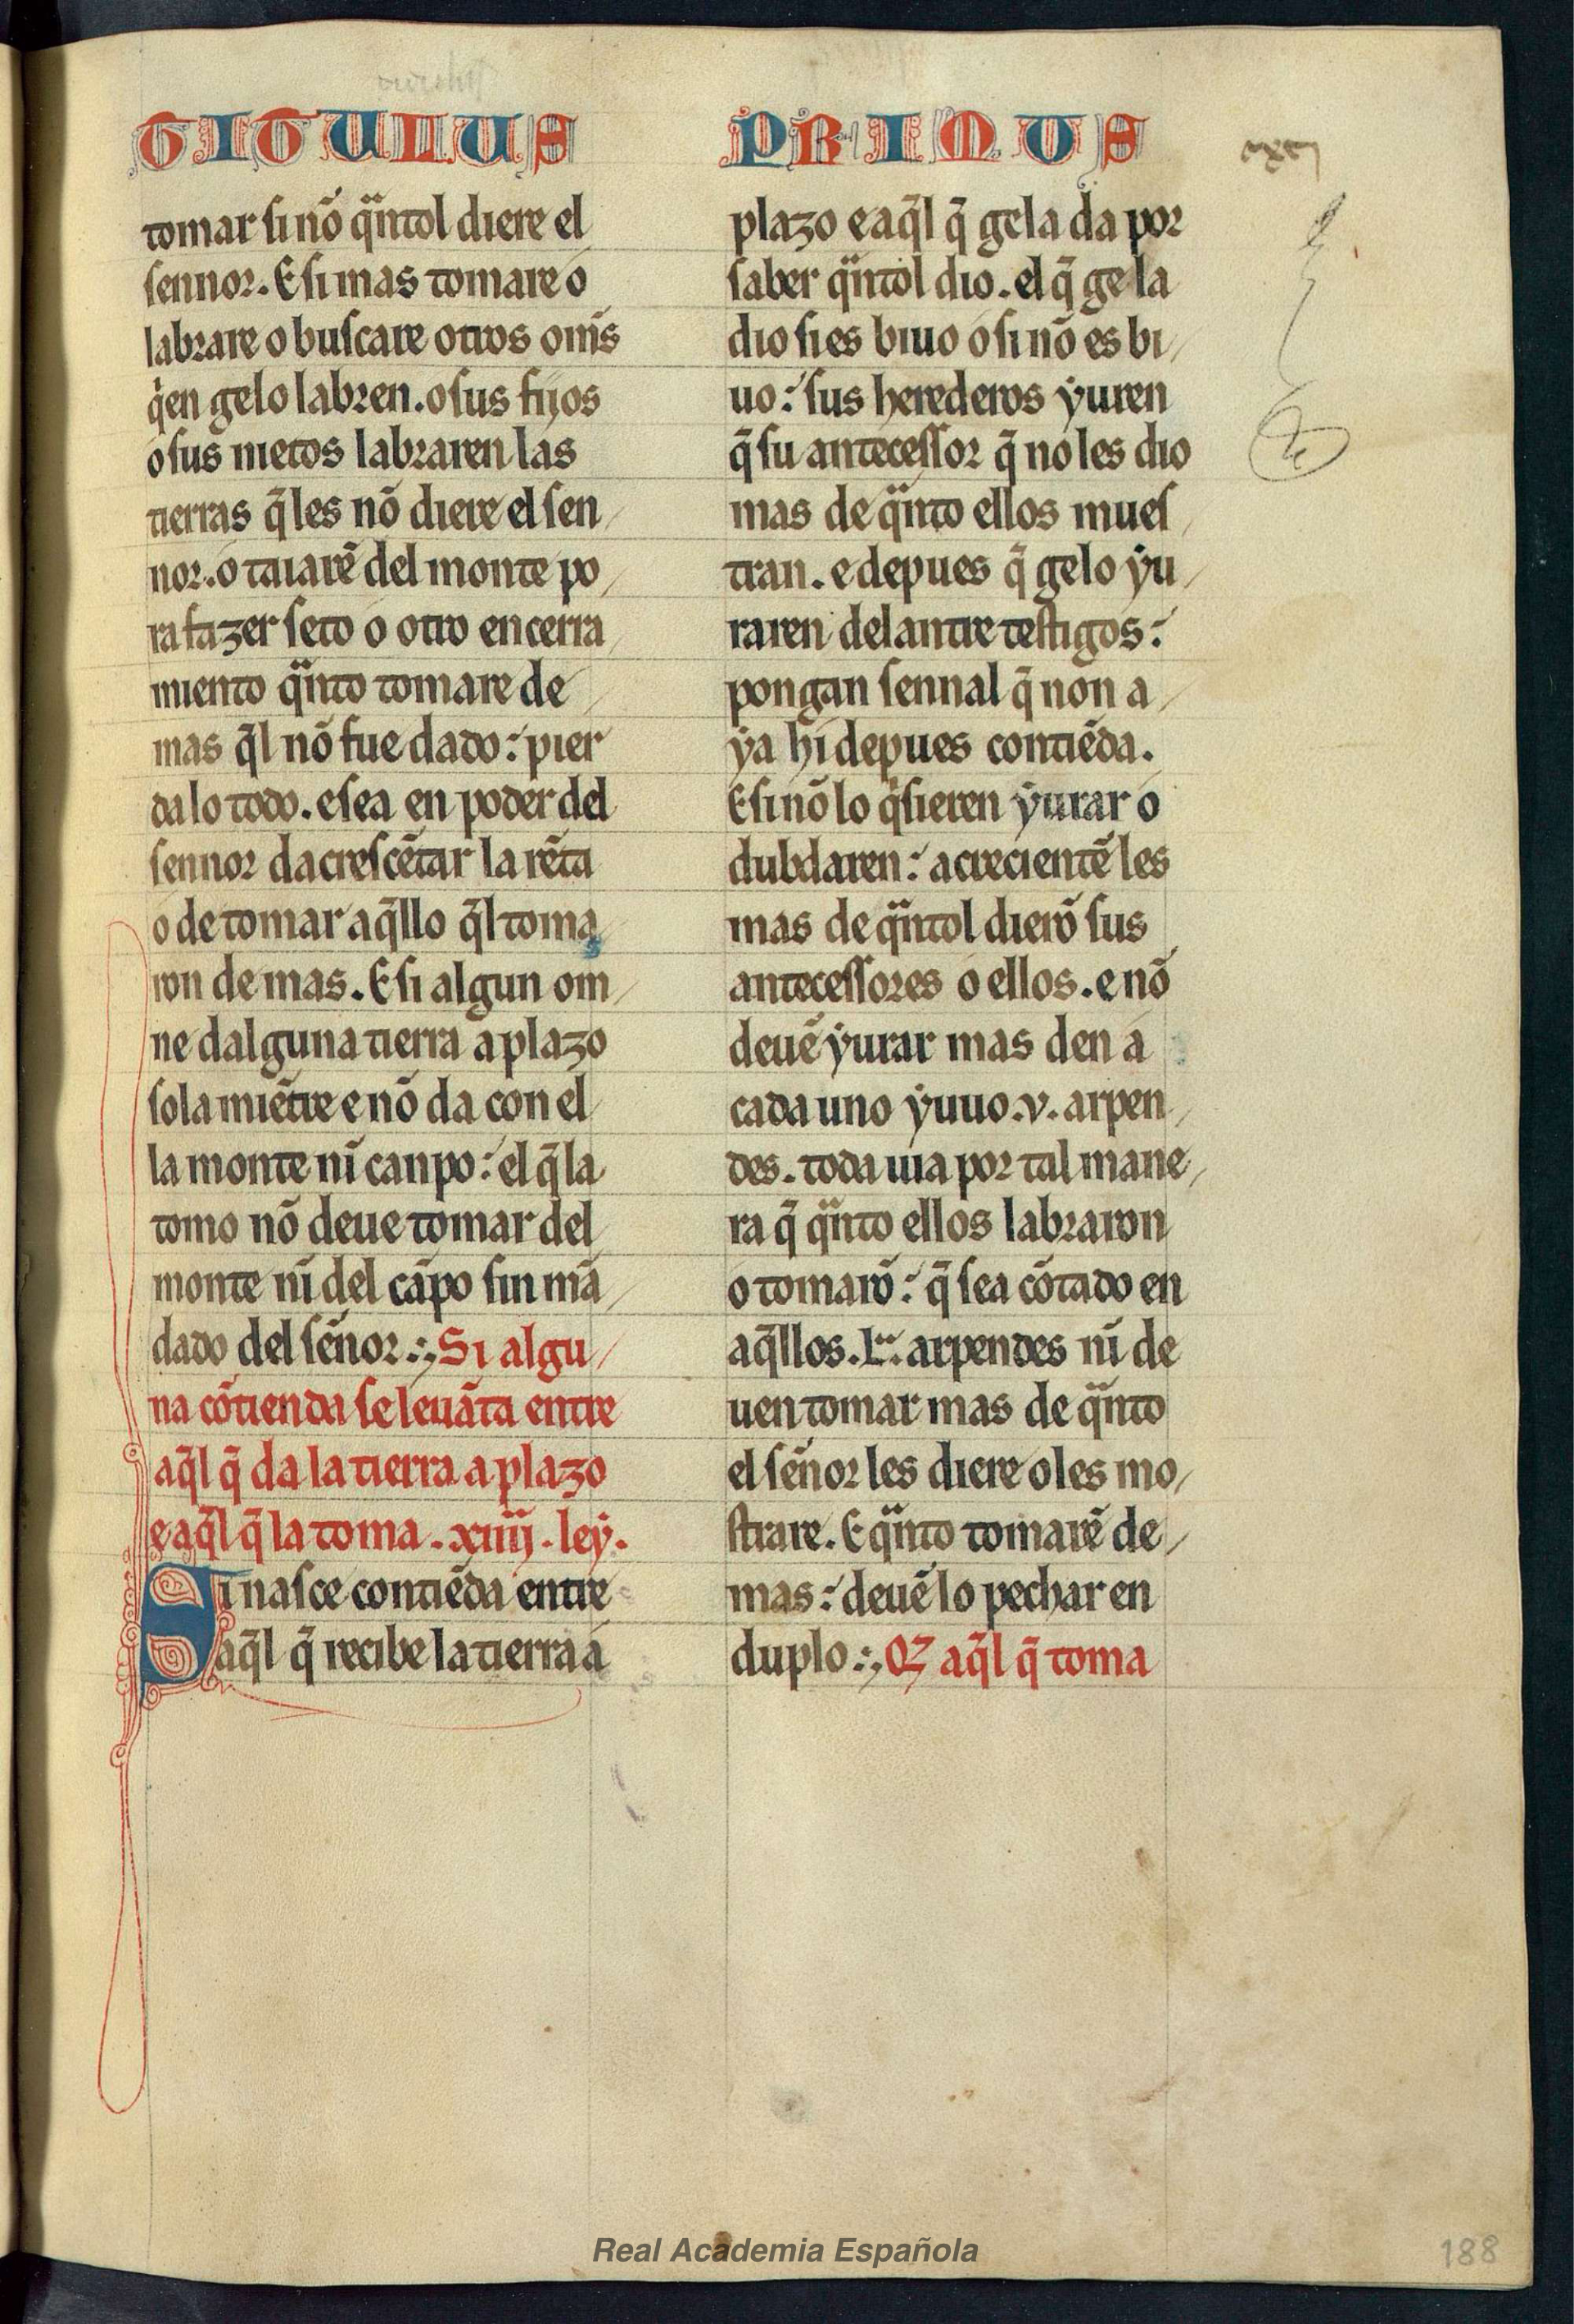 TITULUS PRIMUS
tomar si nõ q̃ntol diere el
sennor. E si mas tomare o
labrare o buscare otros om̃s
qͥen gelo labren. o sus fijos
o sus nietos labraren las
tierras q̃ les nõ diere el sen
nor. o taiarẽ del monte po
ra fazer seto o otro encerra
miento q̃nto tomare de
mas q̃l nõ fue dado: pier
dalo todo. e sea en poder del
sennor dacrescẽtar la rẽta
o de tomar aq̃llo q̃l toma
ron de mas. E si algun om
ne dalguna tierra a plazo
sola miẽtre e nõ da con el
la monte nĩ canpo: el q̃ la
tomo nõ deue tomar del
monte nĩ del cãpo sin mã
dado del sẽnor. Si algu
na cõtienda se leuãta entre
aq̃l q̃ da la tierra a plazo
e aq̃l q̃ la toma. xiiij. leẏ.
Si nasce contiẽda entre
aq̃l q̃ recibe la tierra a
plazo e aq̃l q̃ gela da por
saber q̃ntol dio. el q̃ ge la
dio si es biuo o si nõ es bi
uo: sus herederos ẏuren
q̃ su antecessor q̃ no les dio
mas de q̃nto ellos mues
tran. e depues q̃ gelo ẏu
raren delantre testigos:
pongan sennal q̃ non a
ẏa hi depues contiẽda.
E si nõ lo qͥsieren ẏurar o
dubdaren: acrecientẽ les
mas de q̃ntol dierõ sus
antecessores o ellos. e nõ
deuẽ ẏurar mas den a
cada uno ẏuuo .v. arpen
des. toda uia por tal mane
ra q̃ q̃nto ellos labraron
o tomarõ: q̃ sea cõtado en
aq̃llos .L. arpendes nĩ de
uen tomar mas de q̃nto
el sẽnor les diere o les mo
strare. E q̃nto tomarẽ de
mas: deuẽ lo pechar en
duplo. Qꝫ aq̃l q̃ toma
Real Academia Española
188